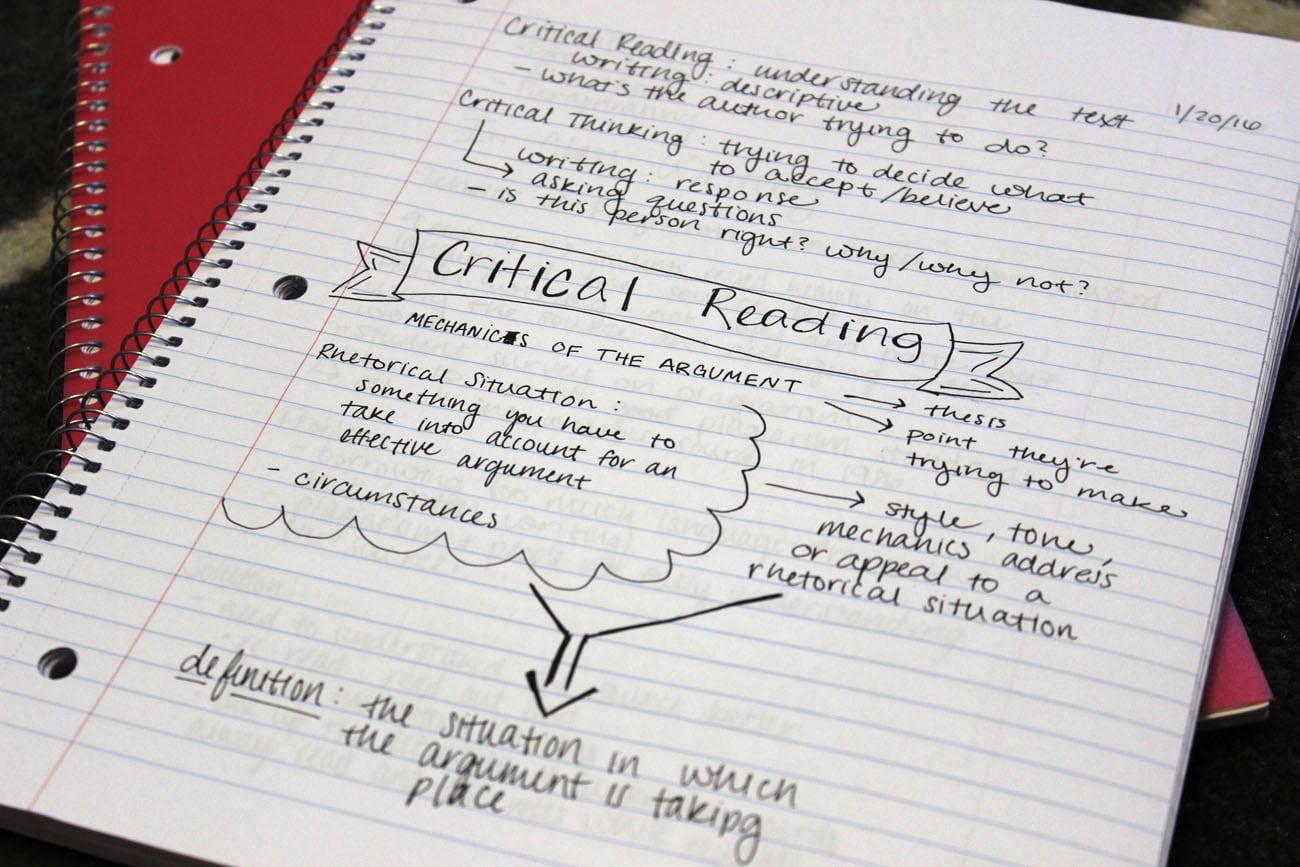 Critical Reading: understanding the text
1/20/16
writing: descriptive
- what's the author trying to do?
Critical Thinking: trying to decide what
to accept/believe
writing: response
asking questions
- is this person right? why/why not?
Critical Reading
MECHANICS OF THE ARGUMENT
thesis
point they're
trying to make
Rhetorical Situation:
something you have to
take into account for an
effective argument
- circumstances
style, tone,
mechanics address
or appeal to a
rhetorical situation
definition: the situation in which
the argument is taking
place